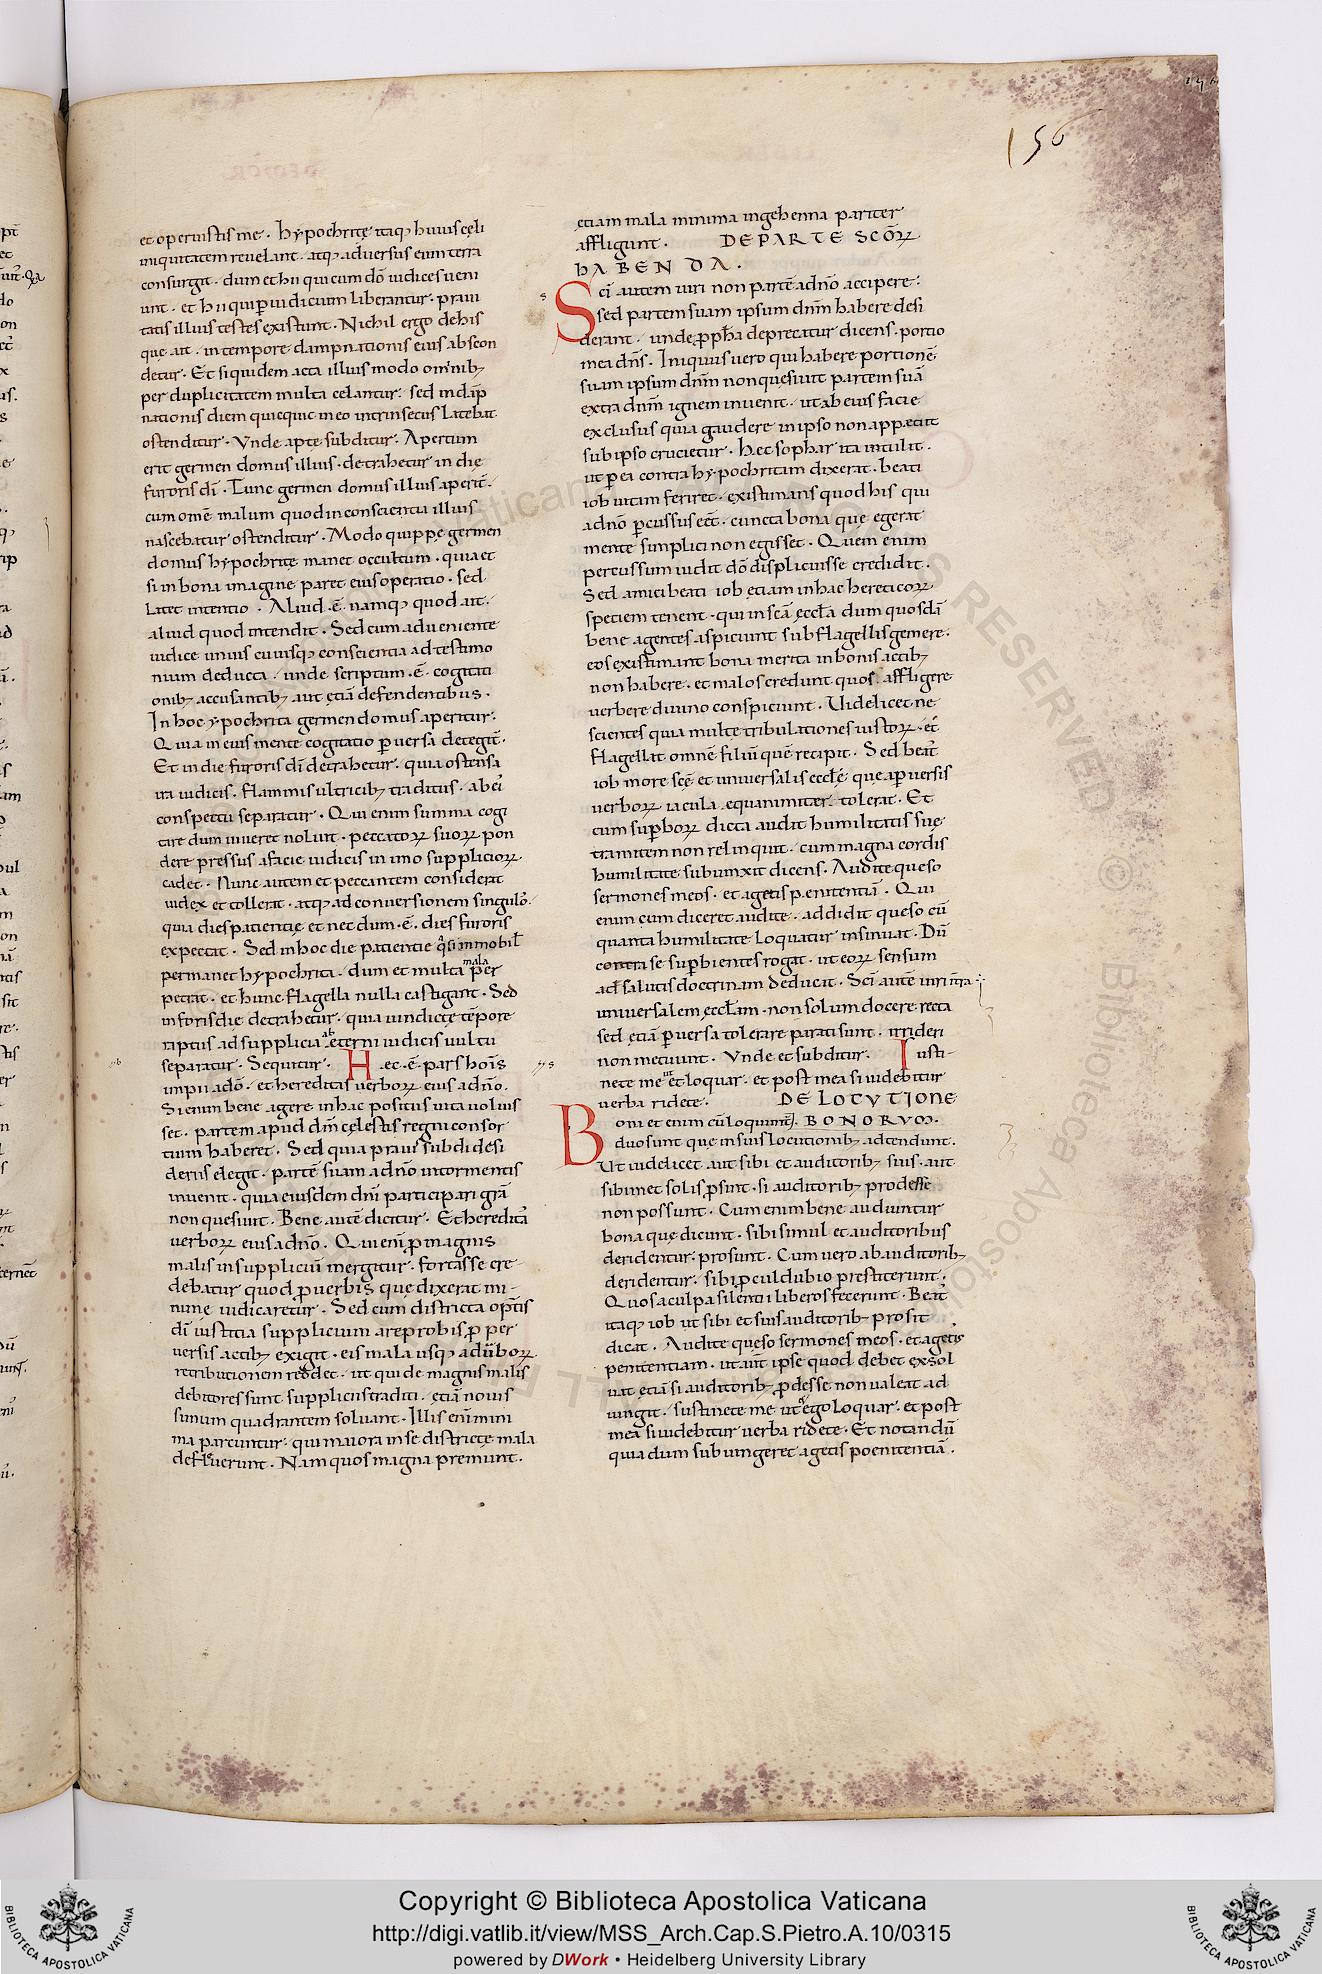 156
et operuistis me. hypochritę itaq; huius cęli
iniquitatem revelant. atq; adversus eum terra
consurgit. dum et hii qui cum dō iudices veni
unt. et hii qui p̄ iudicium liberantur. pravi
tatis illius testes existunt. Nichil ergo de his
que ait. in tempore dampnationis eius abscon
detur. Et siquidem acta illius modo omnib;
per duplicitatem multa celantur. sed in dāp
nationis diem quicquid in eo intrinsecus latebat
ostenditur. Vnde apte subditur. Apertum
erit germen domus illius. detrahetur in die
furoris dī. Tunc germen domus illius aperit̄.
cum omē malum quod in conscientia illius
nascebatur ostenditur. Modo quippe germen
domus hypochritę manet occultum. quia et
si in bona imagine paret eius operatio. sed
latet intentio. Aliud. ē. namq; quod ait.
aliud quod intendit. Sed cum adveniente
iudice unius cuiusq; conscientia ad testimo
nium deducta. unde scriptum. ē. cogitati
onib; accusantib; aut ętiā defendentibus.
In hoc ypochrita germen domus aperitur.
Quia in eius mente cogitatio p̄versa detegit̄.
Et in die furoris dī detrahetur. quia ostensa
ira iudicis. flammis ultricib; traditus. ab ei'
conspectu separatur. Qui enim summa cogi
tare dum viveret noluit. peccatorꝝ suorꝝ pon
dere pressus a facie iudicis in imo suppliciorꝝ
cadet. Nunc autem et peccantem considerat
iudex et tollerat. atq; ad conversionem singulo.
quia dies patientię et nec dum. ē. dies furoris
expectat. Sed in hoc die patientie q̄si immobil
permanet hypochrita. dum et multa mala p̄per
petrat. et hunc flagella nulla castigant. Sed
in foris die detrahetur. quia vindictę tēpore
raptus ad supplicia ab ęterni iudicis vultu
separatur. Sequitur. Hec. ē. pars hoīs
impii a dō. et hereditas verborꝝ eius a dn̄o.
Si enim bene agere in hac positus vita voluis
set. partem apud dm̄ cęlestis regni consor
tium haberet. Sed quia pravi' subdi desi
deriis elegit. partē suam a dn̄o in tormentis
invenit. quia eiusdem dn̄i participari grā
non quesivit. Bene autē dicitur. Et heredita
verborꝝ eius a dn̄o. Qui enī p̄ magnis
malis in suppliciū mergitur. fortasse cre
debatur quod p̄ verbis que dixerat mi-
nime iudicaretur. Sed cum districta optīs
dī iustitia supplicium a reprobis p̄ per
versis actib; exigit. eis mala usq; ad ūborꝝ
retributionem reddet. ut qui de magnis malis
debitores sunt suppliciis traditi. ętiā novis
simum quadrantem solvant. Illis enī mini
ma parcuntur. qui maiora in se districtę mala
defleverunt. Nam quos magna premunt.
ętiam mala minima in gehenna pariter
affligunt. DE PARTE SCŌRꝝ
HABENDA.
Sci autem viri non partē a dn̄o accipere.
sed partem suam ipsum dnm̄ habere desi
derant. unde p̄ph̄a deprecatur dicens. portio
mea dn̄s. Iniquus vero qui habere portionē
suam ipsum dnm̄ non quesivit partem suā
extra dnm̄ ignem invenit. ut ab eius facie
exclusus quia gaudere in ipso non appetiit
sub ipso crucietur. Hec sophar ita intulit.
ut p̄ ea contra hypochritam dixerat. beati
iob vitam feriret. existimans quod his qui
a dn̄o p̄cussus eēt. cuncta bona que egerat
mente simplici non egisset. Quem enim
percussum vidit dō displicuisse credidit.
Sed amici beati iob ętiam in hac hereticorꝝ
speciem tenent. qui in scā ęccl̄a dum quosdā
bene agentes aspiciunt sub flagellis gemere.
eos existimant bona merita in bonis actib;
non habere. et malos credunt quos affligere
verbere divino conspiciunt. Videlicet ne
scientes quia multę tribulationes iustorꝝ. et̄
flagellat omnē filiū quē recipit. Sed beat'
iob more scę et universalis eccl̄ę. que a p̄versis
verborꝝ iacula equanimiter tolerat. Et
cum sup̄borꝝ dicta audit humilitatis suę
tramitem non relinquit. cum magna cordis
humilitate subiunxit dicens. Audite queso
sermones meos. et agetis p̄enitentiā. Qui
enim cum diceret audite. addidit queso cū
quanta humilitate loquatur insinuat. Dū
contra se sup̄bientes rogat. ut eorꝝ sensum
ad salutis doctrinam deducat. Scī autē viri intra
universalem ęccl̄am. non solum docere recta
sed ętiā p̄versa tolerare parati sunt. irrideri
non metuunt. Vnde et subditur. Iusti-
nete me ut et loquar. et post mea si videbitur
verba ridete. DE LOCVTIONE
BONORVM.
Boni et enim cū loquunt̄.
duo sunt quę in suis locutionib; adtendunt.
Ut videlicet aut sibi et auditorib; suis. aut
sibimet solis p̄sint. si auditorib; prodesse
non possunt. Cum enim bene audiuntur
bona quę dicunt. sibi simul et auditoribus
deridentur. prosunt. Cum vero ab auditorib;
deridentur. sibi p̄culdubio prestiterunt.
Quos a culpa silentii liberos fecerunt. Beat'
itaq; iob ut sibi et suis auditorib; prosit
dicat. Audite queso sermones meos. et agetis
penitentiam. ut aūt ipse quod debet exsol
vat ętiā si auditorib; p̄desse non valeat ad
iungit. sustinete me ut ego loquar. et post
mea si videbitur verba ridete. Et notandū
quia dum subiungeret agetis poenitentiā.
Copyright © Biblioteca Apostolica Vaticana
http://digi.vatlib.it/view/MSS_Arch.Cap.S.Pietro.A.10/0315
powered by DWork • Heidelberg University Library
BIBLIOTECA APOSTOLICA VATICANA
BIBLIOTECA APOSTOLICA VATICANA